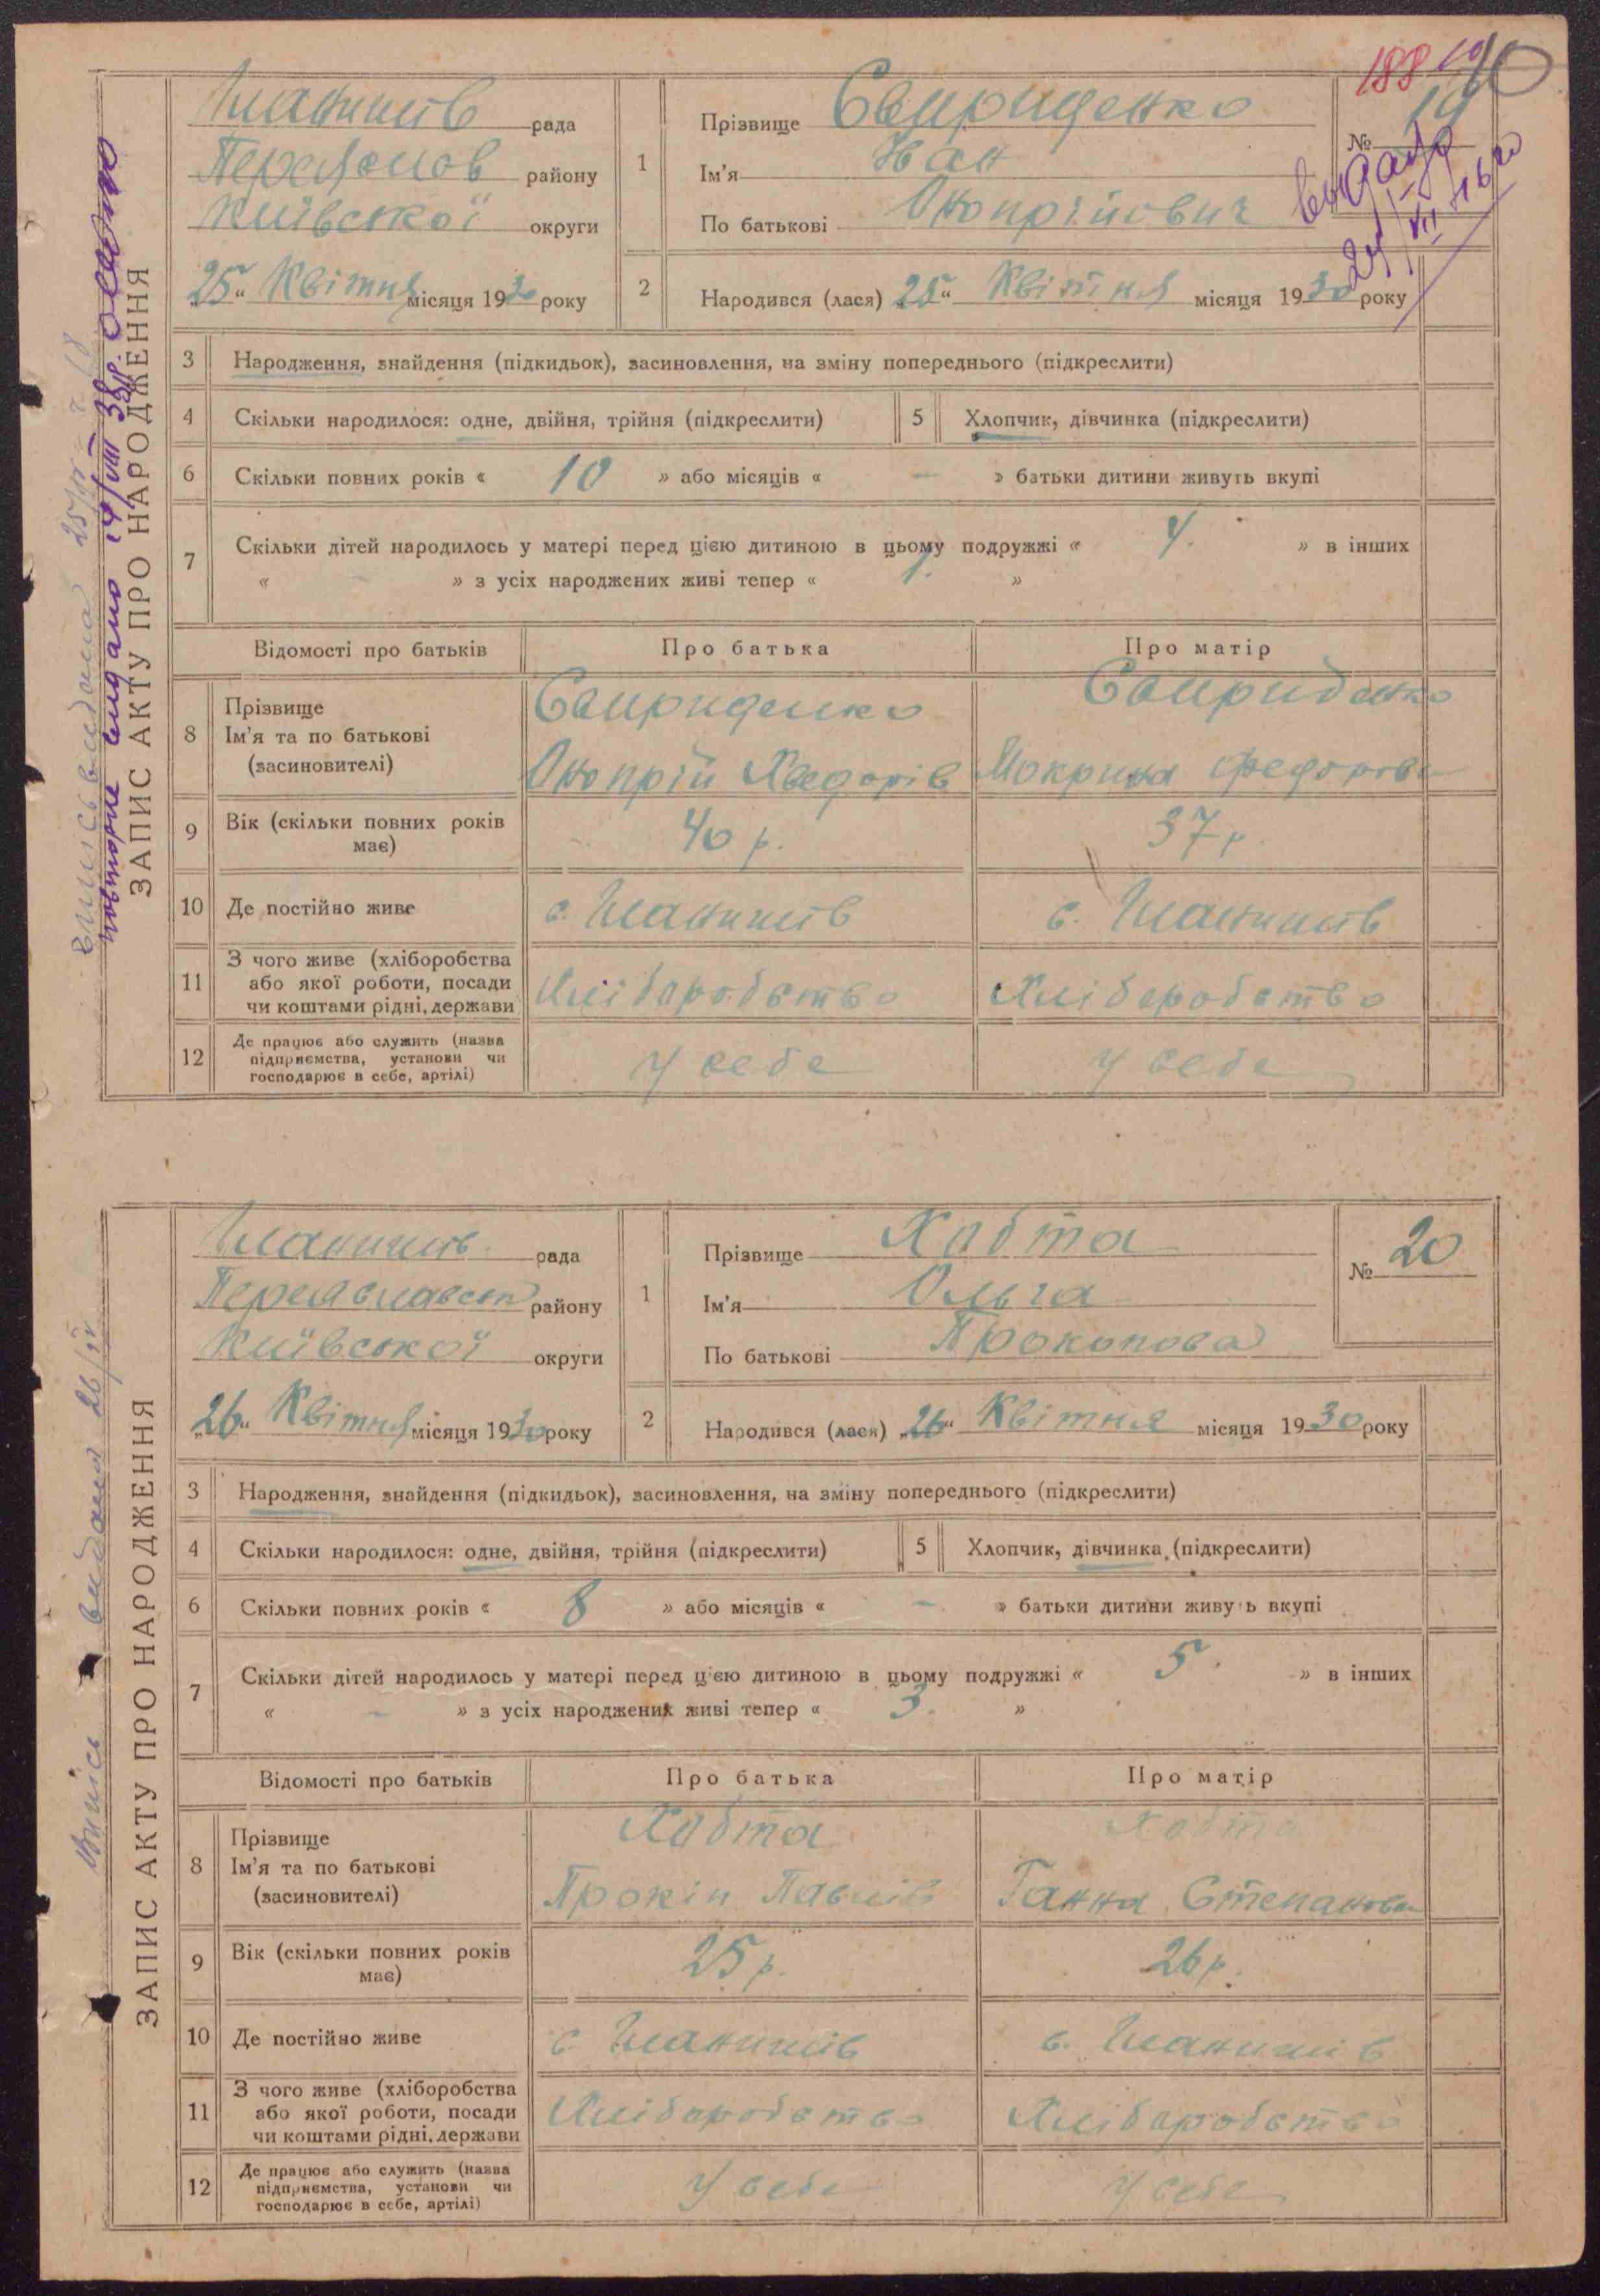 188
190
ЗАПИС АКТУ ПРО НАРОДЖЕННЯ
рада
району
Київської округи
"25" Квітня місяця 1930 року
1
Прізвище Свириденко
Ім'я Іван
По батькові Онопрійович
№ 19
видано
2
Народився (лася) 25" Квітня місяця 1930 року
3 Народження, знайдення (підкидьок), засиновлення, на зміну попереднього (підкреслити)
4 Скільки народилося: одне, двійня, трійня (підкреслити) 5 Хлопчик, дівчинка (підкреслити)
6 Скільки повних років « 10 » або місяців « – » батьки дитини живуть вкупі
7 Скільки дітей народилось у матері перед цією дитиною в цьому подружжі « 4. » в інших
« – » з усіх народжених живі тепер « 1. »
Відомості про батьків Про батька Про матір
8 Прізвище
Ім'я та по батькові
(засиновителі)
Свириденко
Онопрій Хведорів
Свириденко
Мокрина Федорова
9 Вік (скільки повних років
має)
40 р. 37 р.
10 Де постійно живе
11 З чого живе (хліборобства
або якої роботи, посади
чи коштами рідні, держави
Хліборобство Хліборобство
12 Де працює або служить (назва
підприємства, установи чи
господарює в себе, артілі)
у себе у себе
ЗАПИС АКТУ ПРО НАРОДЖЕННЯ
Випись видана 26/IV
рада
району
Київської округи
"26" Квітня місяця 1930 року
1
Прізвище Хобта
Ім'я Ольга
По батькові Прокопова
№ 20
2
Народився (лася) "26" Квітня місяця 1930 року
3 Народження, знайдення (підкидьок), засиновлення, на зміну попереднього (підкреслити)
4 Скільки народилося: одне, двійня, трійня (підкреслити) 5 Хлопчик, дівчинка (підкреслити)
6 Скільки повних років « 8 » або місяців « – » батьки дитини живу ь вкупі
7 Скільки дітей народилось у матері перед цією дитиною в цьому подружжі « 5. » в інших
« – » з усіх народжених живі тепер « 3. »
Відомості про батьків Про батька Про матір
8 Прізвище
Ім'я та по батькові
(засиновителі)
Хобта
Прокіп Павлів
Хобта
Ганна Степанова
9 Вік (скільки повних років
має)
25 р. 26 р.
10 Де постійно живе
11 З чого живе (хліборобства
або якої роботи, посади
чи коштами рідні, держави
Хліборобство Хліборобство
12 Де працює або служить (назва
підприємства, установи чи
господарює в себе, артілі)
у себе у себе